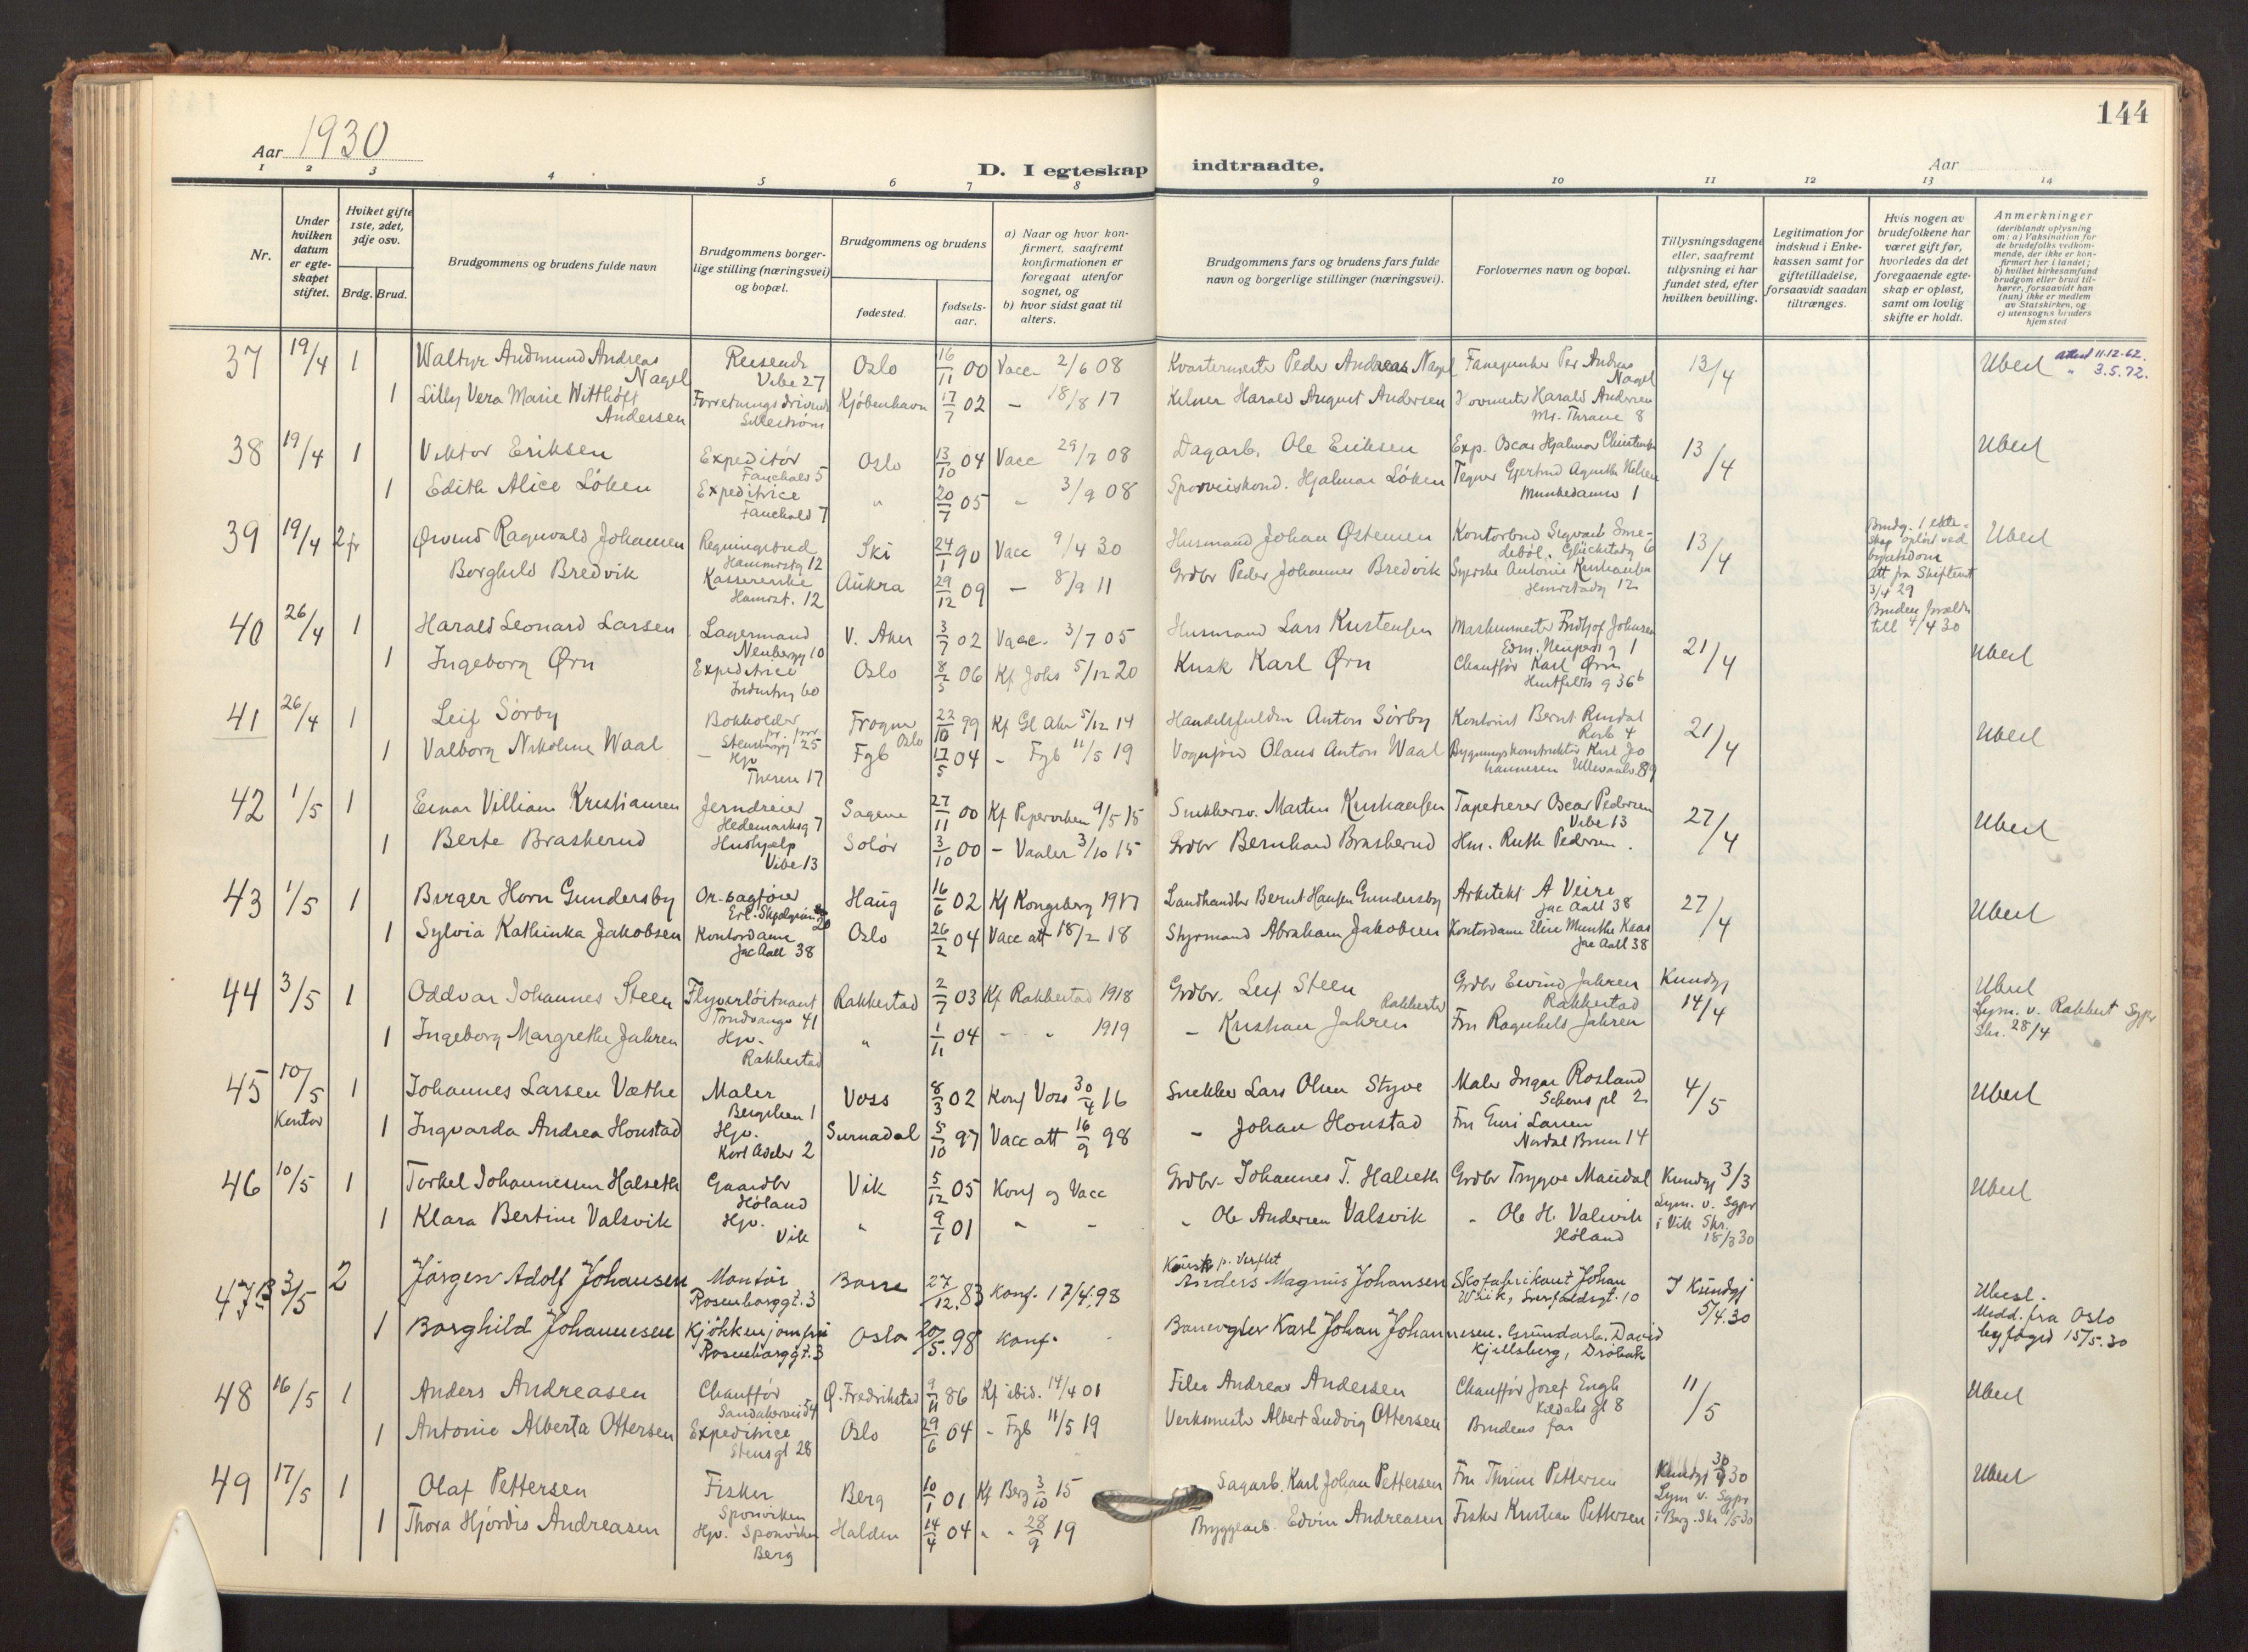 144
Aar 1930
D. I egteskap indtraadte.
Aar
1 2 3 4 5 6 7 8 9 10 11 12 13 14
Nr.
Under hvilken datum er egteskapet stiftet.
Hviket gifte 1ste, 2det, 3dje osv.
Brdg. Brud.
Brudgommens og brudens fulde navn
Brudgommens borgerlige stilling (næringsvei) og bopæl.
Brudgommens og brudens
fødested.
fødselsaar.
a) Naar og hvor konfirmert, saafremt konfirmationen er foregaat utenfor sognet, og
b) hvor sidst gaat til alters.
Brudgommens fars og brudens fars fulde navn og borgerlige stillinger (næringsvei).
Forlovernes navn og bopæl.
Tillysningsdagene eller, saafremt tillysning ei har fundet sted, efter hvilken bevilling.
Legitimation for indskud i Enkekassen samt for giftetilladelse, forsaavidt saadan tiltrænges.
Hvis nogen av brudefolkene har været gift før, hvorledes da det foregaaende egteskap er opløst, samt om lovlig skifte er holdt.
Anmerkninger (deriblandt oplysning om: a) Vaksination for de brudefolks vedkommende, der ikke er konfirmert her i landet; b) hvilket kirkesamfund brudgom eller brud tilhører, forsaavidt han (hun) ikke er medlem av Statskirken, og c) utensogns bruders hjemsted
37 19/4 1 Waltyr Audmund Andreas Nagel Reisende Vibe 27 Oslo 16/11 00 Vacc 2/6 08 Kvartermester Peder Andreas Nagel Fanejunker Per Andreas Nagel 13/4 Ubesl Attest 11.12.62.
" 3.5.72.
1 Lilly Vera Marie Witthöft Andersen Forretningsdrivende Kjöbenhavn 17/7 02 – 18/8 17 Kelner Harald August Andersen Hovmester Harald Andersen M. Thrane 8
38 19/4 1 Viktor Eriksen Expeditör Fauchalds 5 Oslo 13/10 04 Vacc 29/7 08 Dagarb. Ole Eriksen Exp. Oscar Hjalmar 13/4 Ubesl
1 Edith Alice Löken Expeditrice Fauchald 7 " 20/7 05 " 3/9 08 Sporveiskond. Hjalmar Löken Munkedamsv 1
39 19/4 2 fr Øivind Ragnvald Johansen Regningsbud Hammerstg 12 Ski 24/1 90 Vacc 9/4 30 Husmand Johan Østensen Kontorbud Sigvart Smedeböl, Glückstadg 6 13/4 Brudg. 1 ekteskap oplöst ved byretsdom Att fra Skifterett 3/4 29 Ubesl
Borghild Bredvik Kassererske Hamrst. 12 Aukra 29/12 09 – 8/9 11 Grdbr Peder Johannes Bredvik Syerske Antonie Kristiansen 12
40 26/4 1 Harald Leonard Larsen Lagermand Neubergg 10 V. Aker 3/7 02 Vacc. 3/7 05 Husmand Lars Kristensen Maskinmester Fridtjof Johnsen 1 21/4 Ubesl
1 Ingeborg Ørn Expeditrice Industrig 60 Oslo 8/5 06 Kf Johs 5/12 20 Kusk Karl Ørn Chaufför Karl Ørn Huitfeldts g 36b
41 26/4 1 Leif Sörby Bokholder Stensberg 25 Frogner Oslo 22/10 99 Kf Gl Aker 5/12 14 Anton Sörby Kontorist Bernt Rindal 4 21/4 Ubesl
1 Valborg Nikoline Waal – Hjv Theres 17 Fgb 17/5 04 – Fgb 11/5 19 Vognfører Olaus Anton Waal Bygningskonstruktör Karl Johannesen Ullevaalsv 89
42 1/5 1 Einar Villiam Kristiansen Jerndreier Hedemarksg 7 Sagene 27/11 00 Kf Piperviken 9/5 15 Snekkersv. Martin Kristiansen Tapetserer Oscar Pedersen Vibe 13 27/4 Ubesl
1 Berte Braskerud Hushjelp Vibe 13 Solör 3/10 00 – Vaaler 3/10 15 Grdbr Bernhard Braskerud Hm. Ruth Pedersen
43 1/5 1 Birger Horn Gundersby Or. sagförer 20 Haug 16/6 02 Kf Kongsberg 1917 Landhandler Bernt Hansen Gundersby Arkitekt A Veire Jac Aall 38 27/4 Ubesl
1 Sylvia Kathinka Jakobsen Kontordame Jac Aall 38 Oslo 26/2 04 Vacc att 18/2 18 Styrmand Abraham Jakobsen Kontordame Elise Munthe Kaas Jac Aall 38
44 3/5 1 Oddvar Johannes Steen Flyverlöitnant 41 Rakkestad 2/7 03 Kf Rakkestad 1918 Grdbr. Leif Steen Rakkestad Grdbr Eivind Jahren Rakkestad Kundgj 14/4 Ubesl Lysn. v. Rakkest Sgpr Skr. 28/4
1 Ingeborg Margrethe Jahren Hjv. Rakkestad " 1/11 04 – " 1919 – Kristian Jahren Fru Ragnhild Jahren
45 10/5 Kontor 1 Johannes Larsen Væthe Maler Bergslien 1 Voss 8/3 02 Konf Voss 30/4 16 Snekker Lars Olsen Styve Maler Ingar Rosland Schous pl 2 4/5 Ubesl
1 Ingvarda Andrea Honstad Hjv. Kort Adeler 2 Surnadal 5/10 97 Vacc att 16/9 98 – Johan Honstad Fru Guri Larsen Nordal Brun 14
46 10/5 1 Torkel Johannesen Halseth Gaardbr Höland Vik 5/12 05 Konf og Vacc Grdbr. Johannes T. Halseth Grdbr Trygve Mandal Kundgj 3/3 Lysn. v. Sgpr i Vik Skr. 18/3 30 Ubesl
1 Klara Bertine Valsvik Hjv. Vik " 9/1 01 " – " Ole Andersen Valsvik " Ole H. Valsvik Höland
47 13/5 2 Jörgen Adolf Johansen Montör Rosenborggt. 3 Borre 27/12.83 Konf. 17/4.98 p. Verftet Anders Magnus Johansen Skofabrikant Johan Wiik, 10 I Kundgj 5/4.30 Ubesl. Medd. fra Oslo byfogd 15/5.30
1 Borghild Johannesen Kjökkenjomfru Rosenborggt. 3 Oslo 20/5.98 Konf. Banevogter Karl Johan Johannesen. Grundarb. David Kjellsberg, Dröbak
48 16/5 1 Anders Andreasen Chaufför Sandakerveid 54 Ö. Fredrikstad 9/11 86 Kf ibid. 14/4 01 Filer Andreas Andersen Chaufför Josef Engh 8 11/5 Ubesl
1 Antonie Alberta Ottersen Expeditrice Stensgt 28 Oslo 29/6 04 – Fgb 11/5 19 Verksmester Albert Ludvig Ottersen Brudens far
49 17/5 1 Olaf Pettersen Fisker Sponviken Berg 10/1 01 Kf Berg 3/10 15 Sagarb. Karl Johan Pettersen Fru Thrine Pettersen Kundgj 30/4 30 Lysn v. Sgpr i Berg. Skr 30 Ubesl
1 Thora Hjördis Andreasen Hjv. Sponviken Berg Halden 14/4 04 " " 28/9 19 Bryggearb. Edvin Andreasen Fisker Kristian Pettersen